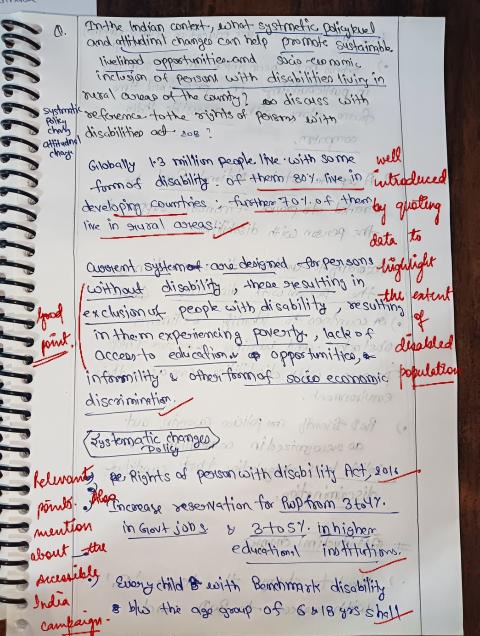 Q. In the Indian context, what systmetic policy level
and attitudinal changes can help promote sustainable
livelihood opportunities and socio-economic
inclusion of persons with disabilities living in
rural areas of the county? discuss with
reference to the rights of persons with
disabilities act
systmatic
policy
chang
attitudnal
change
Globally 1.3 million people live with some
form of disability. of them 80% live in
developing countries; further 70% of them
live in rural areas.
well
introduced
by quoting
data to
highlight
the extent
of
disabled
population
Current system are designed for persons
without disability these resulting in
exclusion of people with disability, resulting
in them experiencing poverty, lack of
access to education & opportunities,
informility & other form of socio economic
discrimination.
Good
point.
Systematic changes
Policy
Rights of person with disability Act, 2016
Increase reservation for PWD from 3 to 4%
in Govt jobs & 3 to 5% in higher
educational institutions.
Every child with Benchmark disability
b/w the age group of 6 & 18 yrs shall
Relevant
points. Also
mention
about the
Accessible
India
campaign.